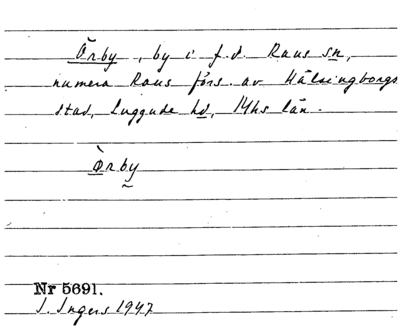 Örby, by i f.d. Raus sn,
numera Raus förs. av Hälsingborgs
stad, Luggude hd, Mhs län.
Òrby
Nr 5691.
I. Ingers 1947